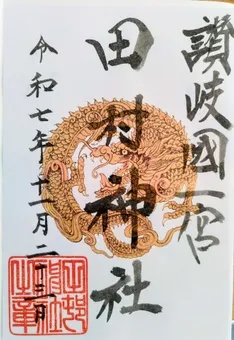 讃岐國一宮
田村神社
令和七年十一月二十三日